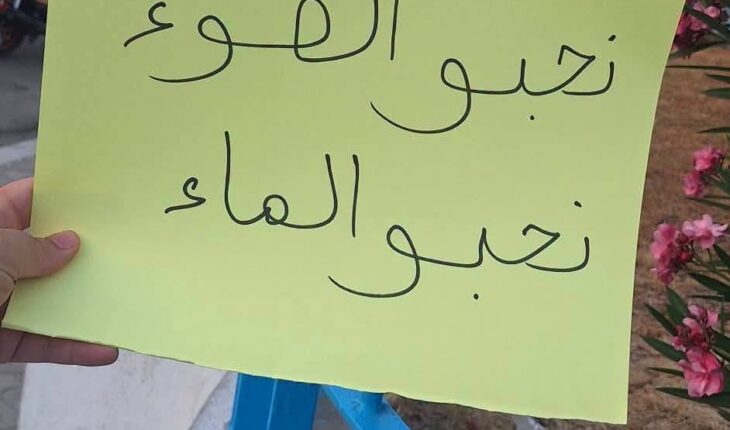 نحبو الضوء
نحبو الماء